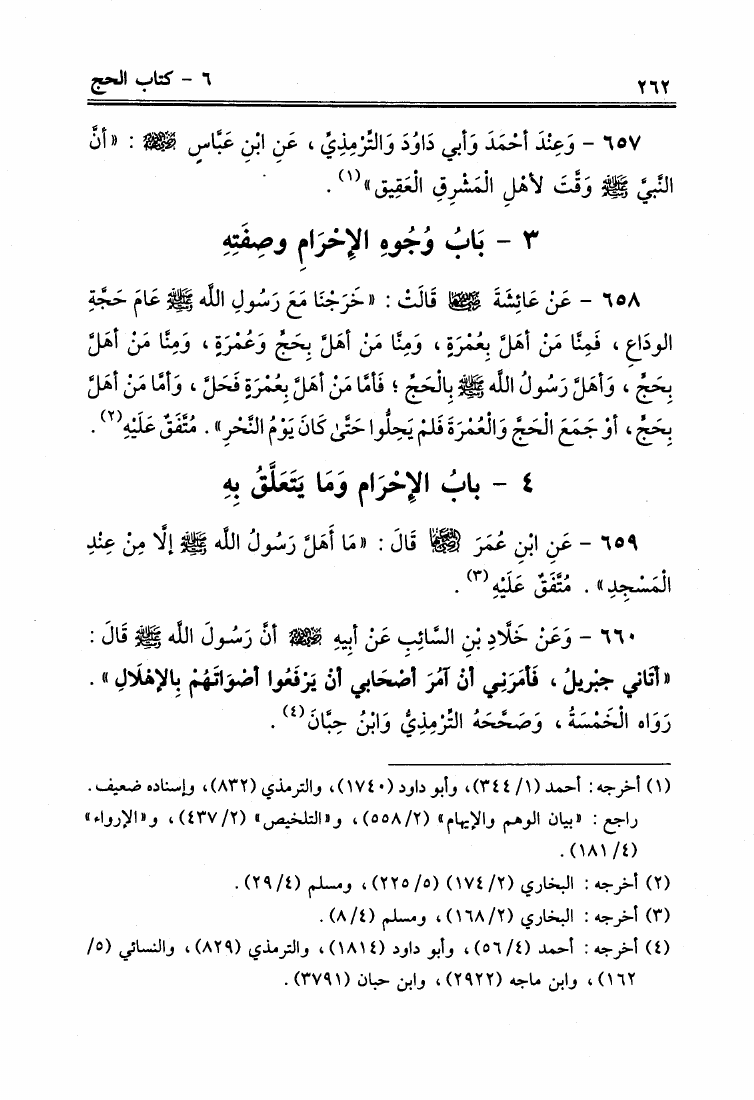 ٢٦٢
٦ - كتاب الحج
٦٥٧ - وَعِنْدَ أَحْمَدَ وَأَبي دَاوُدَ وَالتِّرْمِذِيِّ، عَنِ ابْنِ عَبَّاسٍ رضي الله عنه : «أَنَّ
النَّبيَّ ﷺ وَقَّتَ لأَهْلِ الْمَشْرِقِ الْعَقِيق»(١).
٣ - بَابُ وُجُوهِ الإِحْرَامِ وصِفَتِهِ
٦٥٨ - عَنْ عَائِشَةَ رضي الله عنها قَالَتْ : «خَرَجْنَا مَعَ رَسُولِ الله ﷺ عَامَ حَجَّةِ
الودَاعِ، فَمِنَّا مَنْ أَهَلَّ بِعُمْرَةٍ، وَمِنَّا مَنْ أَهَلَّ بِحَجٍّ وَعُمْرَةٍ، وَمِنَّا مَنْ أَهَلَّ
بِحَجٍّ، وَأَهَلَّ رَسُولُ الله ﷺ بِالْحَجِّ؛ فَأَمَّا مَنْ أَهَلَّ بِعُمْرَةٍ فَحَلَّ، وَأَمَّا مَنْ أَهَلَّ
بِحَجٍّ، أَوْ جَمَعَ الْحَجَّ وَالْعُمْرَةَ فَلَمْ يَحِلُّوا حَتَّىٰ كَانَ يَوْمُ النَّحْرِ». مُتَّفَقٌ عَلَيْهِ(٢).
٤ - بابُ الإِحْرَامِ وَمَا يَتَعَلَّقُ بِهِ
٦٥٩ - عَنِ ابْنِ عُمَرَ رضي الله عنهما قَالَ : «مَا أَهَلَّ رَسُولُ الله ﷺ إلَّا مِنْ عِنْدِ
الْمَسْجِدِ». مُتَّفَقٌ عَلَيْهِ(٣).
٦٦٠ - وَعَنْ خَلَّادِ بْنِ السَّائِبِ عَنْ أَبِيهِ رضي الله عنه أَنَّ رَسُولَ الله ﷺ قَالَ :
«أَتَاني جِبْرِيلُ، فَأَمَرَنِي أَنْ آمُرَ أَصْحَابي أَنْ يَرْفَعُوا أَصْوَاتَهُمْ بِالإِهْلَالِ».
رَوَاه الْخَمْسَةُ، وَصَحَّحَهُ التِّرْمِذِيُّ وَابْنُ حِبَّانَ(٤).
(١) أخرجه : أحمد (١/ ٣٤٤)، وأبو داود (١٧٤٠)، والترمذي (٨٣٢)، وإسناده ضعيف.
راجع : «بيان الوهم والإيهام» (٢/ ٥٥٨)، و«التلخيص» (٢/ ٤٣٧)، و«الإرواء»
(٤/ ١٨١).
(٢) أخرجه : البخاري (٢/ ١٧٤) (٥/ ٢٢٥)، ومسلم (٤/ ٢٩).
(٣) أخرجه : البخاري (٢/ ١٦٨)، ومسلم (٤/ ٨).
(٤) أخرجه : أحمد (٤/ ٥٦)، وأبو داود (١٨١٤)، والترمذي (٨٢٩)، والنسائي (٥/
١٦٢)، وابن ماجه (٢٩٢٢)، وابن حبان (٣٧٩١).